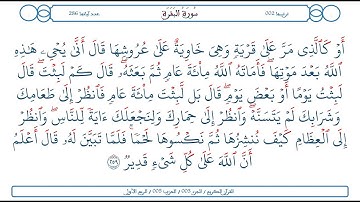 ترتيبها 002
سورة البقرة
عدد آياتها 286
أَوْ كَالَّذِي مَرَّ عَلَىٰ قَرْيَةٍ وَهِيَ خَاوِيَةٌ عَلَىٰ عُرُوشِهَا قَالَ أَنَّىٰ يُحْيِۦ هَٰذِهِ
اللَّهُ بَعْدَ مَوْتِهَا ۖ فَأَمَاتَهُ اللَّهُ مِا۟ئَةَ عَامٍ ثُمَّ بَعَثَهُۥ ۖ قَالَ كَمْ لَبِثْتَ ۖ قَالَ
لَبِثْتُ يَوْمًا أَوْ بَعْضَ يَوْمٍ ۖ قَالَ بَل لَّبِثْتَ مِا۟ئَةَ عَامٍ فَٱنظُرْ إِلَىٰ طَعَامِكَ
وَشَرَابِكَ لَمْ يَتَسَنَّهْ ۖ وَٱنظُرْ إِلَىٰ حِمَارِكَ وَلِنَجْعَلَكَ ءَايَةً لِّلنَّاسِ ۖ وَٱنظُرْ
إِلَى ٱلْعِظَامِ كَيْفَ نُنشِزُهَا ثُمَّ نَكْسُوهَا لَحْمًا ۚ فَلَمَّا تَبَيَّنَ لَهُۥ قَالَ أَعْلَمُ
أَنَّ ٱللَّهَ عَلَىٰ كُلِّ شَىْءٍ قَدِيرٌ ٢٥٩
القرآن الكريم / الجزء 003 / الحزب 005 / الربع الأول